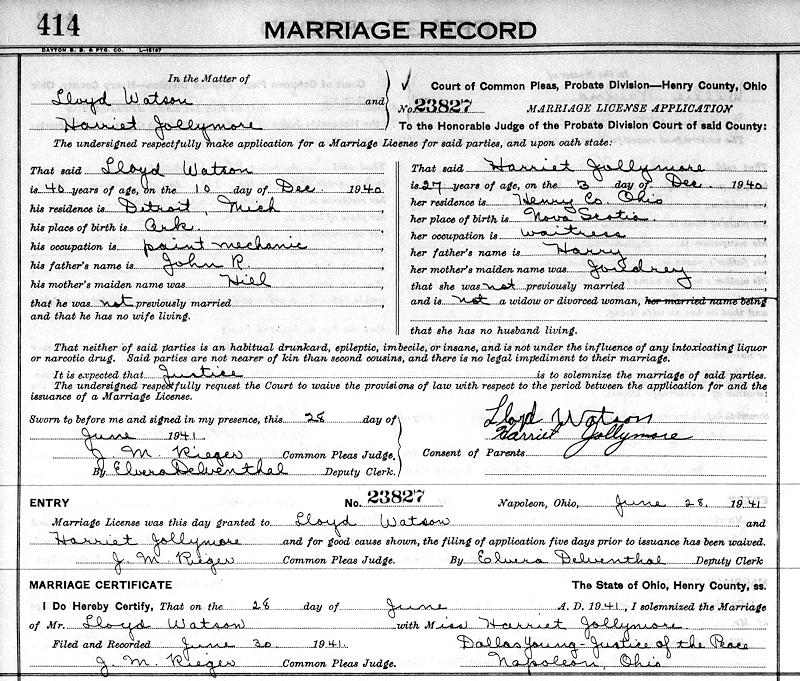 414
MARRIAGE RECORD
DAYTON B. B. & PTG. CO. L-15197
In the Matter of
Lloyd Watson and
Harriet Jollymore
Court of Common Pleas, Probate Division—Henry County, Ohio
No. 23827 MARRIAGE LICENSE APPLICATION
To the Honorable Judge of the Probate Division Court of said County:
The undersigned respectfully make application for a Marriage License for said parties, and upon oath state:
That said Lloyd Watson
is 40 years of age, on the 10 day of Dec. 1940
his residence is Detroit, Mich
his place of birth is Ark.
his occupation is paint mechanic
his father's name is John R.
his mother's maiden name was Hill
that he was not previously married
and that he has no wife living.
That said Harriet Jollymore
is 27 years of age, on the 3 day of Dec. 1940
her residence is Henry Co. Ohio
her place of birth is Nova Scotia.
her occupation is waitress
her father's name is Harry
her mother's maiden name was Joudrey
that she was not previously married
and is not a widow or divorced woman, her married name being
that she has no husband living.
That neither of said parties is an habitual drunkard, epileptic, imbecile, or insane, and is not under the influence of any intoxicating liquor
or narcotic drug. Said parties are not nearer of kin than second cousins, and there is no legal impediment to their marriage.
It is expected that Justice is to solemnize the marriage of said parties.
The undersigned respectfully request the Court to waive the provisions of law with respect to the period between the application for and the
issuance of a Marriage License.
Sworn to before me and signed in my presence, this 28 day of
June 1941
J. M. Rieger Common Pleas Judge.
By Elvera Delventhal Deputy Clerk.
Lloyd Watson
Harriet Jollymore
Consent of Parents
ENTRY No. 23827 Napoleon, Ohio, June 28. 1941
Marriage License was this day granted to Lloyd Watson and
Harriet Jollymore and for good cause shown, the filing of application five days prior to issuance has been waived.
J. M. Rieger Common Pleas Judge. By Elvera Delventhal Deputy Clerk
MARRIAGE CERTIFICATE The State of Ohio, Henry County, ss.
I Do Hereby Certify, That on the 28 day of June A. D. 1941, I solemnized the Marriage
of Mr. Lloyd Watson with Miss Harriet Jollymore.
Filed and Recorded June 30 1941. Dallas Young - Justice of the Peace
J. M. Rieger Common Pleas Judge. Napoleon, Ohio